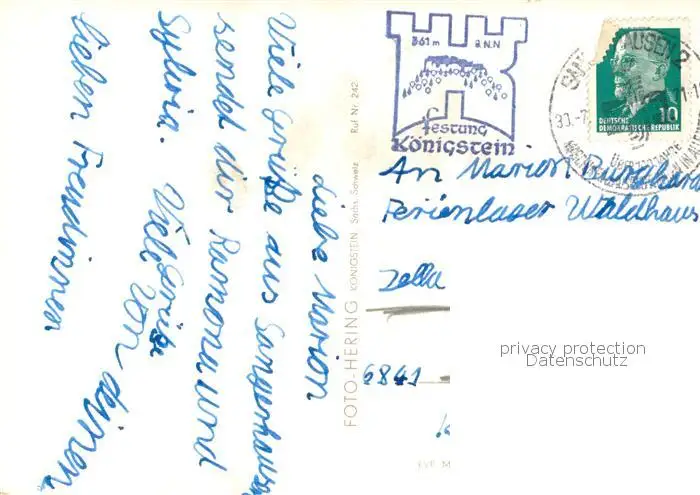 Liebe Marion
Viele Grüße aus Sangerhausen
sendet dir Ramona und
Sylvia. Viel Grüße
von deinen
lieben Freundinnen
FOTO-HERING KÖNIGSTEIN Sächs. Schweiz Ruf Nr. 242
361 m ü.N.N
festung
Königstein
DEUTSCHE
DEMOKRATISCHE REPUBLIK 10
An Marion
Ferienlager Waldhaus
Zella
6841
privacy protection
Datenschutz